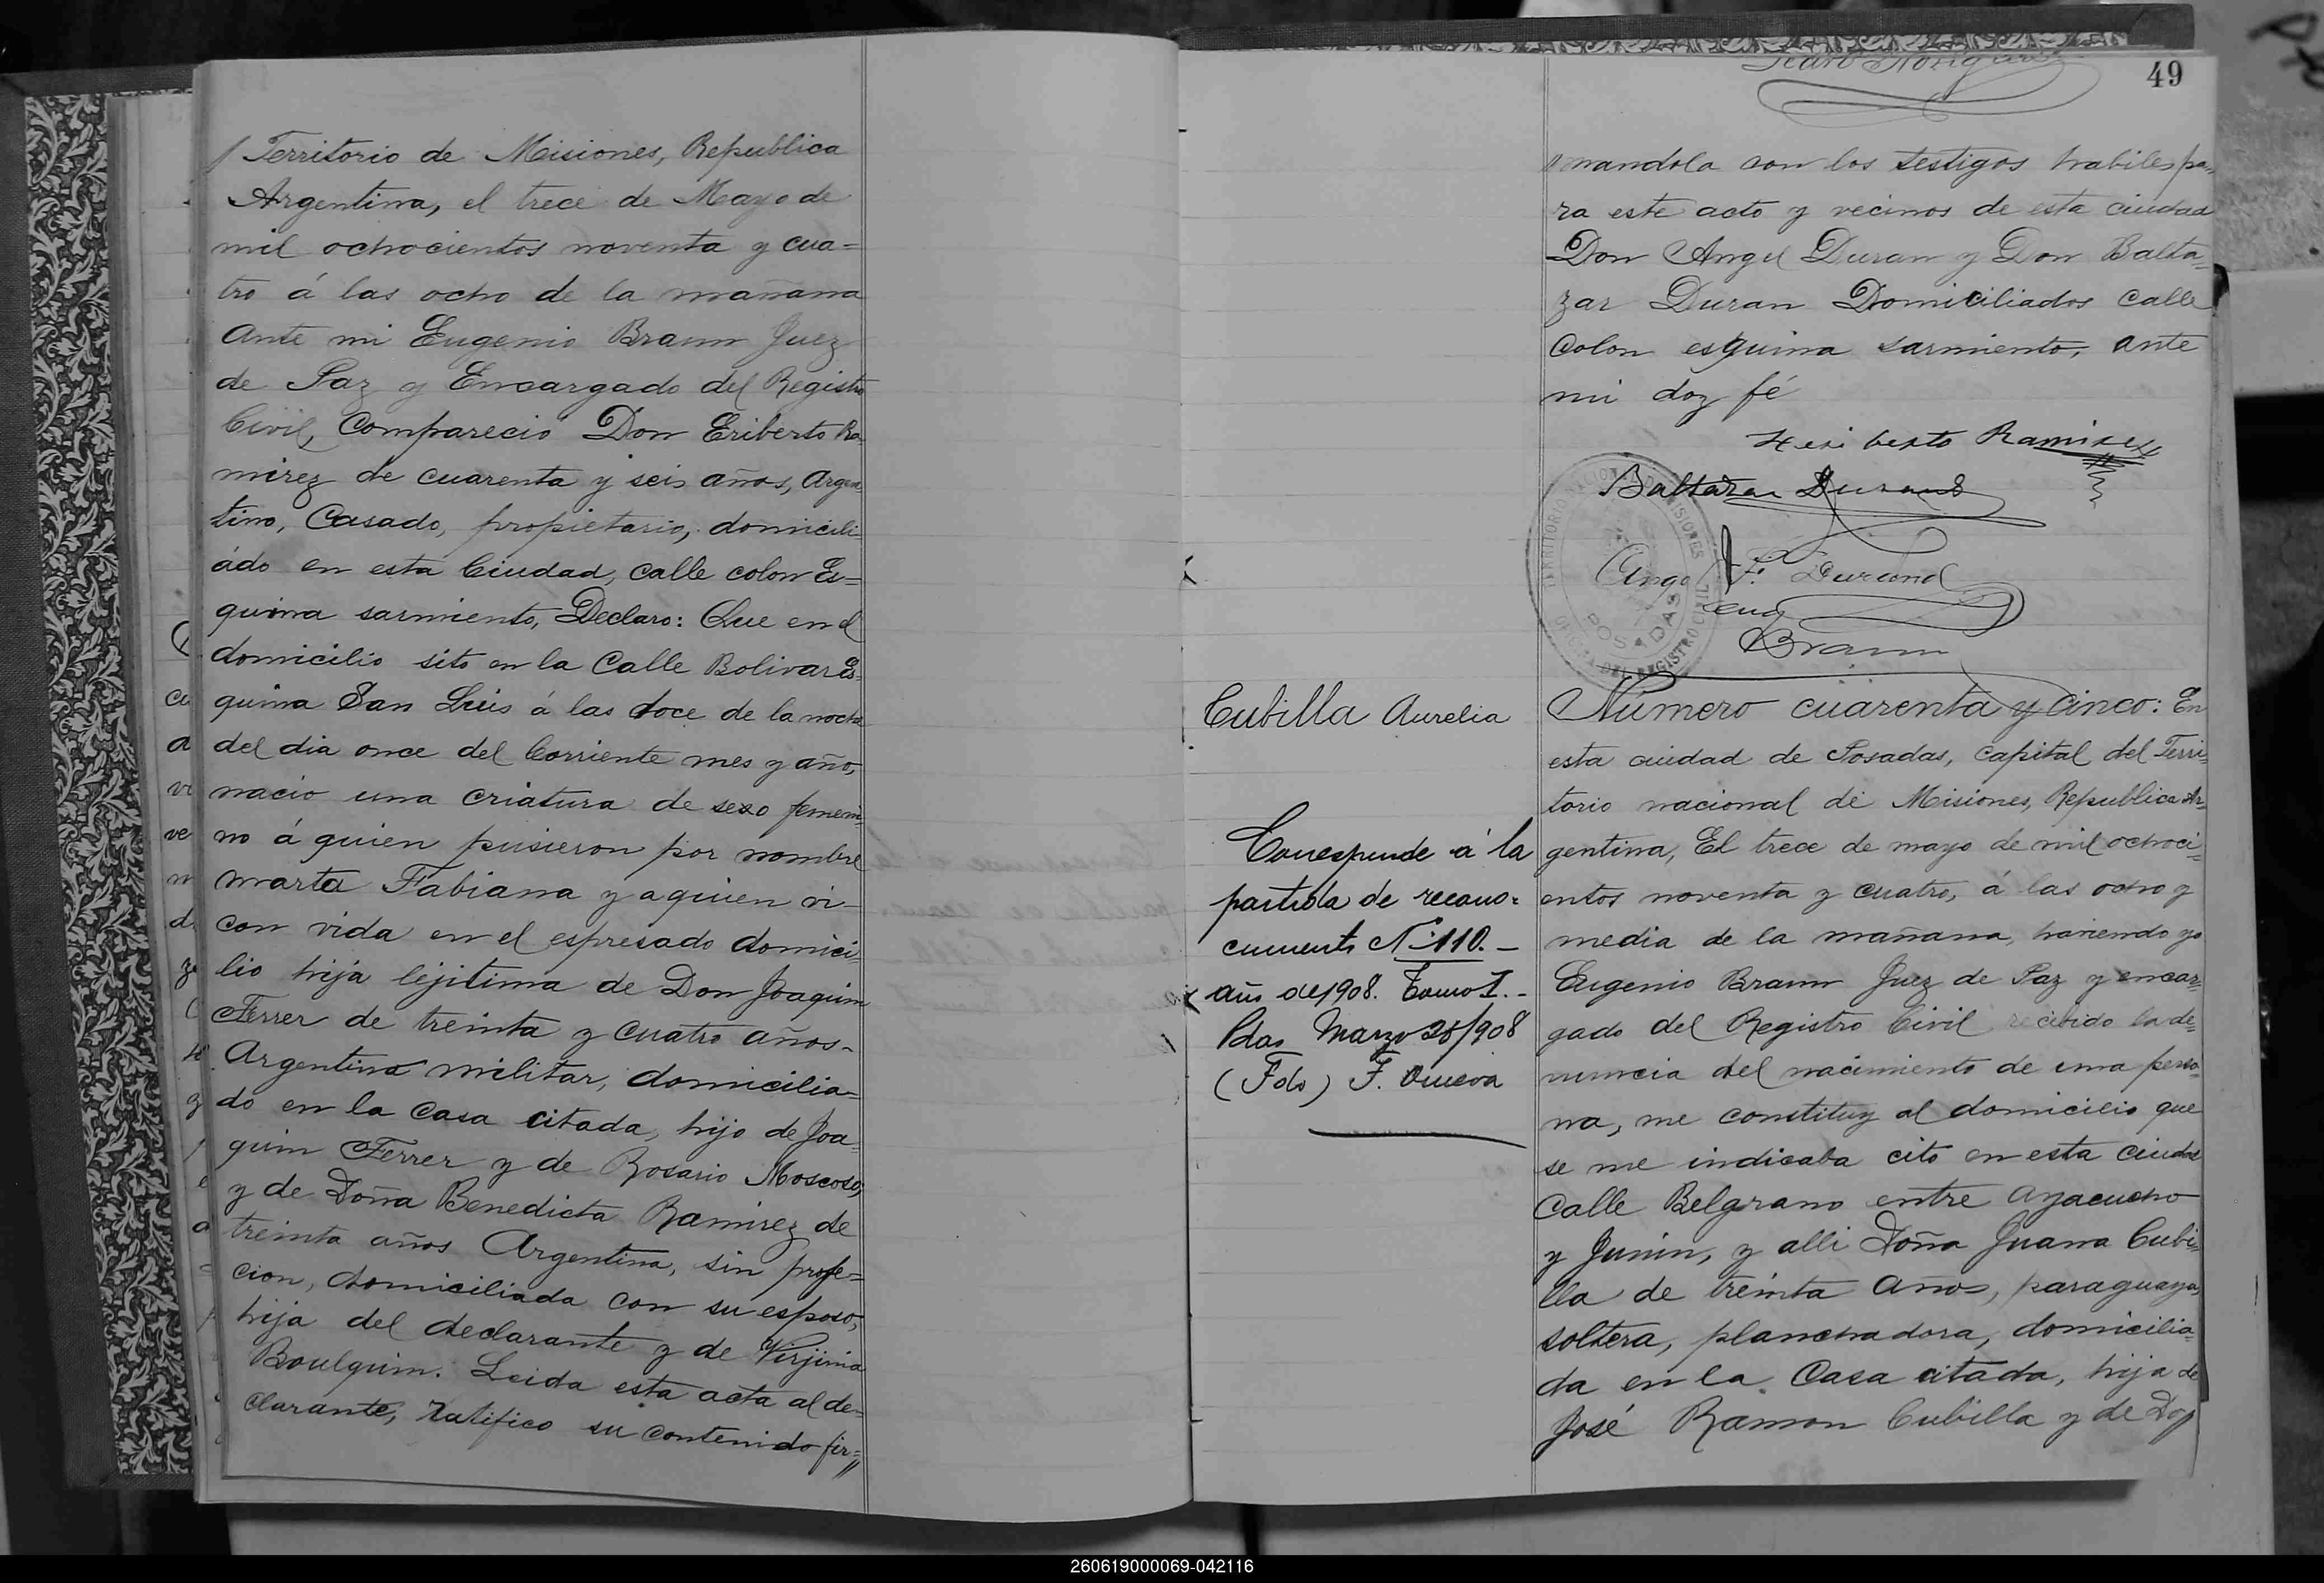 / Territorio de Misiones, Republica
Argentina, el trece de Mayo de
mil ochocientos noventa y cua=
tro á las ocho de la mañana
Ante mi Eugenio Braun Juez
de Paz y Encargado del Registro
Civil, Comparecio Don Eriberto Ra-
mirez de cuarenta y seis años, Argen-
tino, Casado, propietario, domicili-
ádo en esta Ciudad, calle colon Es=
quina sarmiento, Declaro: Que en el
domicilio sito en la Calle Bolivar Es-
quina San Luis á las doce de la noche
del dia once del Corriente mes y año,
nacio una criatura de sexo femeni-
no á quien pusieron por nombre
Marta Fabiana y a quien vi-
con vida en el espresado domici-
lio hija lejitima de Don Joaquim
Ferrer de treinta y cuatro años-
Argentino militar, domicilia-
do en la Casa citada, hijo de Joa-
quim Ferrer y de Rosario Moscoso,
y de Doña Benedicta Ramirez de
treinta años Argentina, sin profe=
cion, domiciliada con su esposo,
hija del declarante y de Virjinia
Boulquin. Leida esta acta al de-
clarante, Ratifico su contenido fir=//
49
// mandola con los testigos habiles pa-
ra este acto y vecinos de esta ciudad
Don Angel Duran y Don Balta-
zar Duran Domiciliados Calle
Colon esquina sarmiento, ante
mi doy fé
Heriberto Ramirez
Baltazar Durand
Angel F. Durand
Eug
Braun
TERRITORIO NACIONAL DE MISIONES
POSADAS
OFICINA DEL REGISTRO CIVIL
Cubilla Aurelia
Corresponde á la
partida de recono=
cimiento Nº 110.-
año de 1908. Tomo I.-
Pdas Marzo 28/908
(Fdo) F.
Número cuarenta y cinco: En
esta ciudad de Posadas, Capital del Terri-
torio nacional de Misiones, Republica Ar-
gentina, El trece de mayo de mil ochoci-
entos noventa y cuatro, á las ocho y
media de la mañana, haviendo yo
Eugenio Braun Juez de Paz y encar-
gado del Registro Civil recibido la de-
nuncia del nacimiento de una perso-
na, me constituy al domicilio que
se me indicaba cito en esta ciudad
Calle Belgrano entre Ayacucho
y Junin, y alli Doña Juana Cubi-
lla de treinta años, paraguaya,
soltera, planchadora, domicilia-
da en la Casa citada, hija de
José Ramon Cubilla y de Do/
260619000069-042116